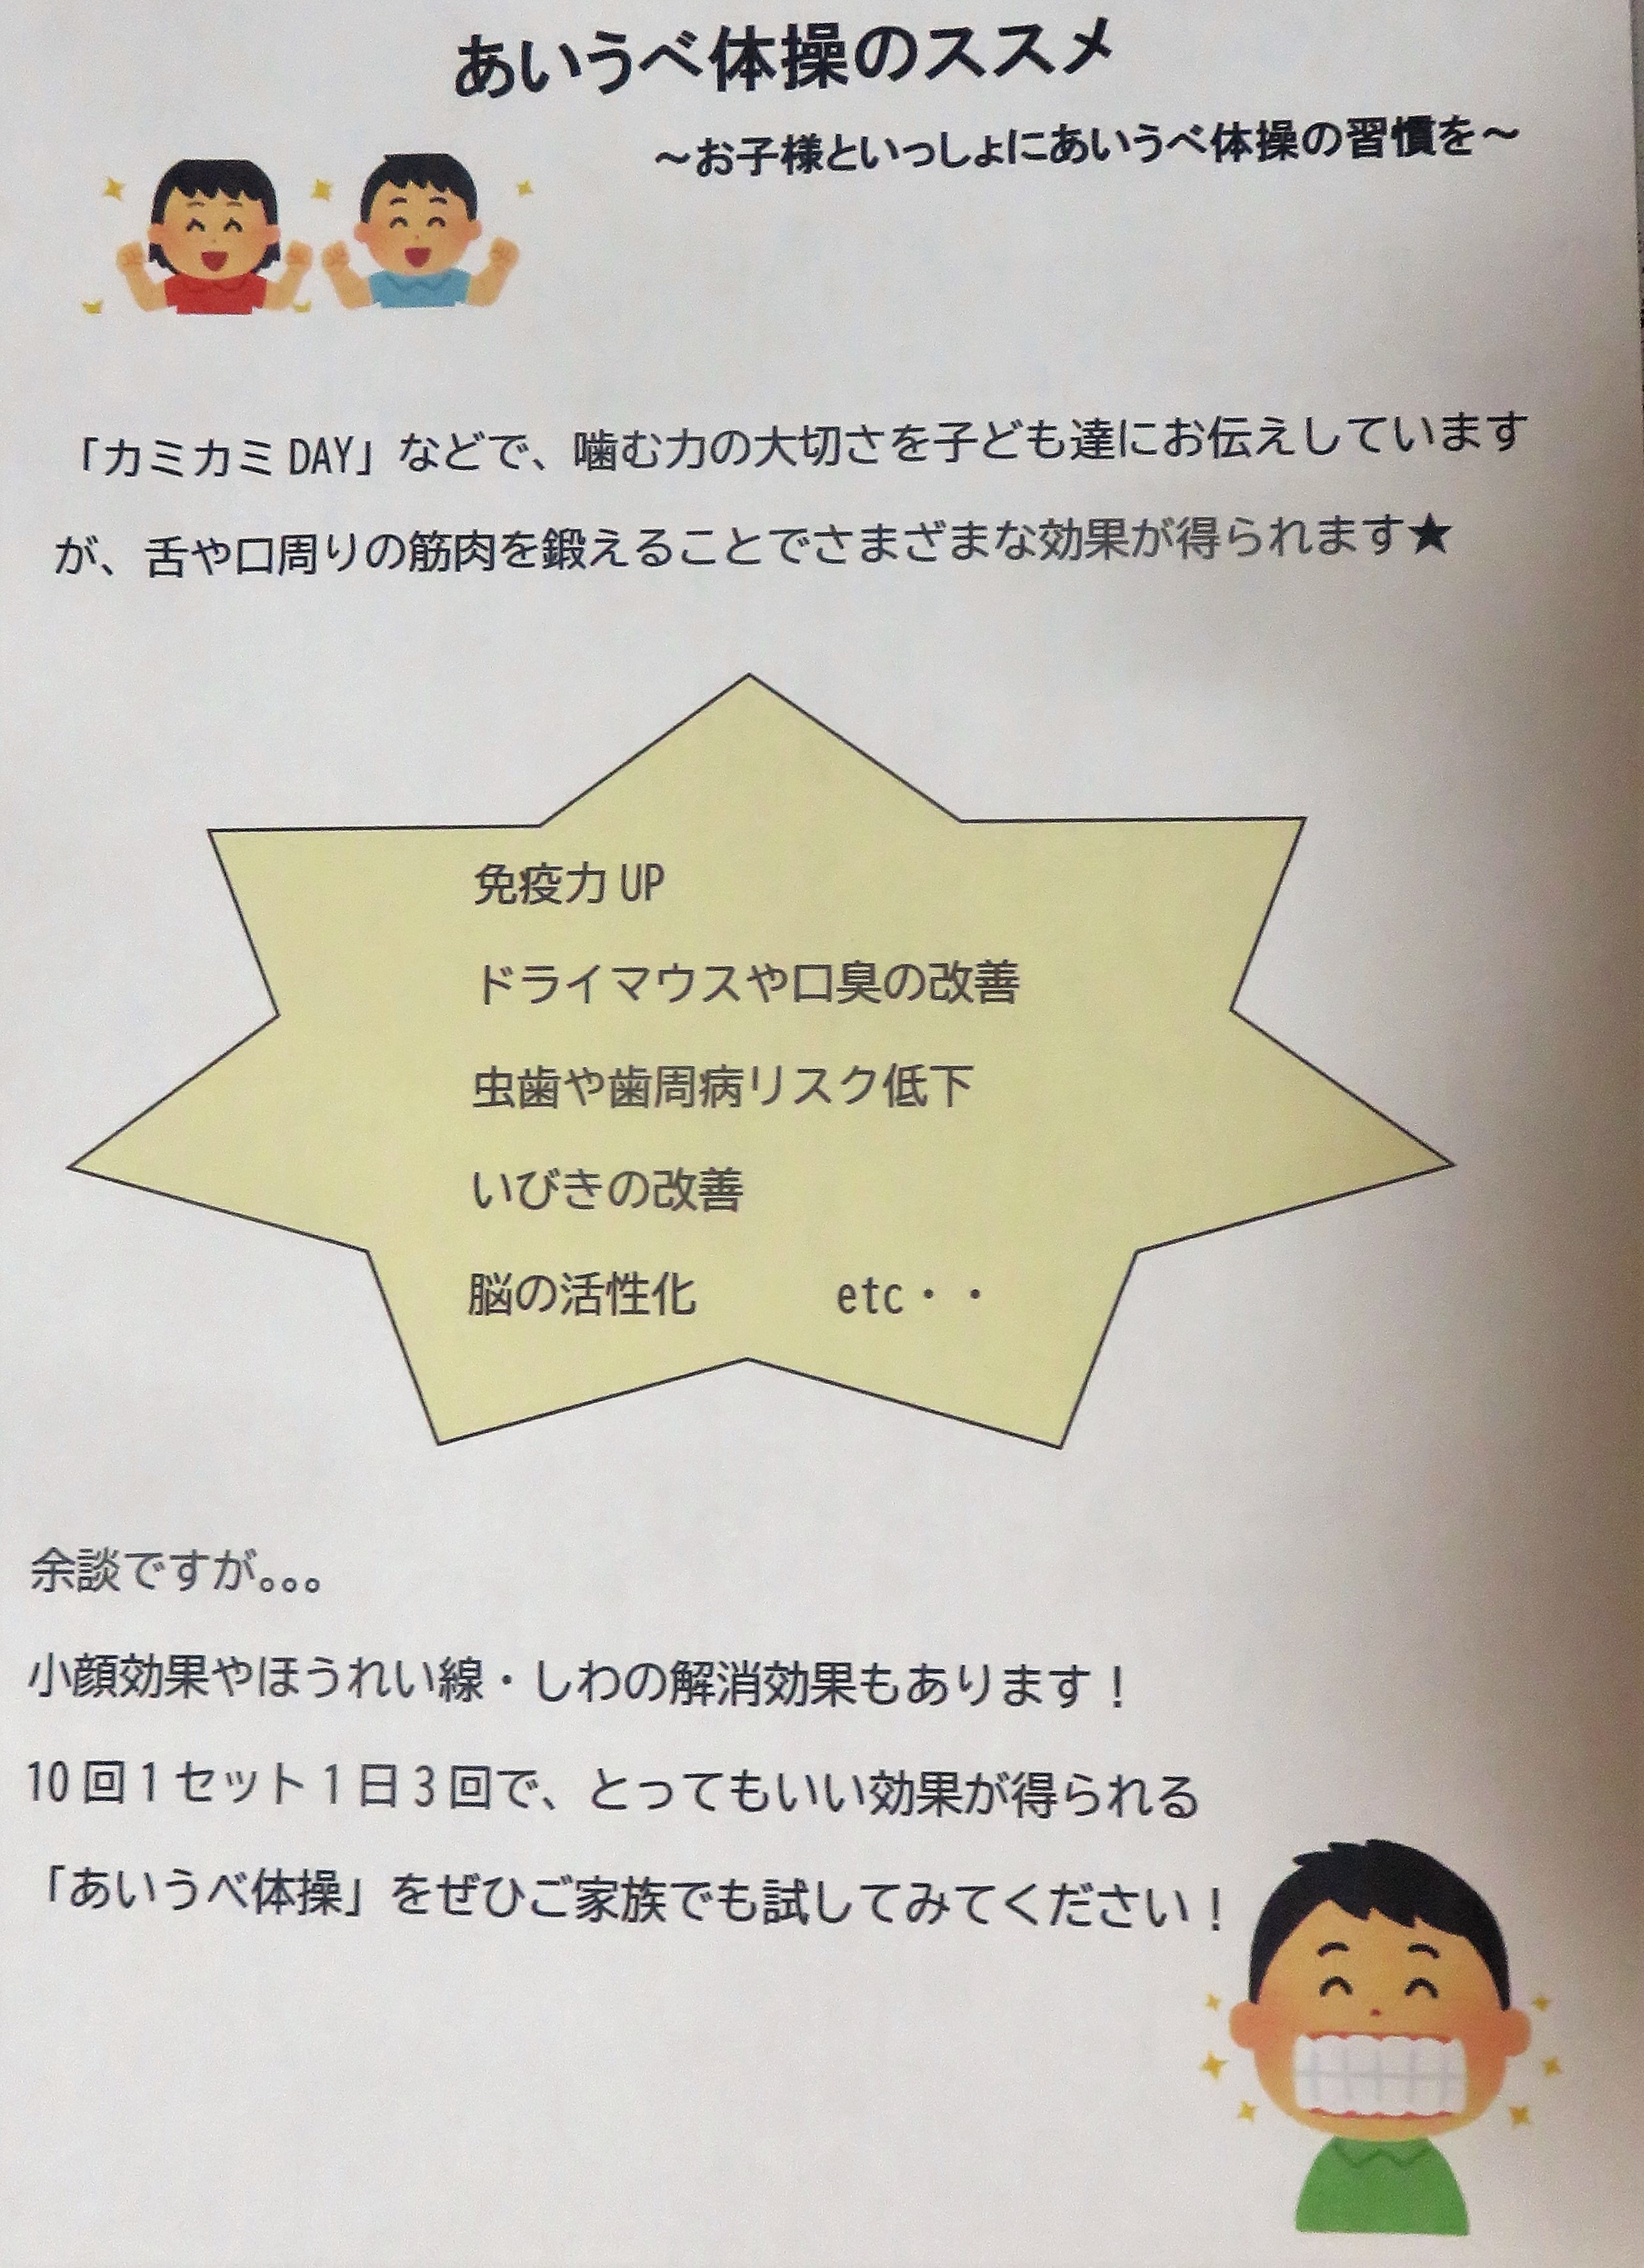 あいうべ体操のススメ
～お子様といっしょにあいうべ体操の習慣を～
「カミカミDAY」などで、噛む力の大切さを子ども達にお伝えしています
が、舌や口周りの筋肉を鍛えることでさまざまな効果が得られます★
免疫力UP
ドライマウスや口臭の改善
虫歯や歯周病リスク低下
いびきの改善
脳の活性化　　　etc・・
余談ですが。。。
小顔効果やほうれい線・しわの解消効果もあります！
10回1セット1日3回で、とってもいい効果が得られる
「あいうべ体操」をぜひご家族でも試してみてください！